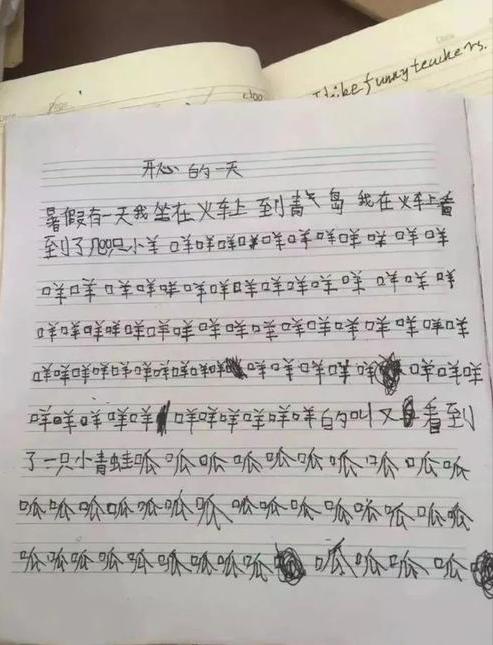 I like funny teachers.
开心的一天
暑假有一天我坐在火车上到青气岛我在火车上看
到了700只小羊咩咩咩咩咩咩咩咩咩咩咩
咩咩咩咩咩咩咩咩咩咩咩咩咩咩咩咩
咩咩咩咩咩咩咩咩咩咩咩咩咩咩咩咩咩咩
咩咩咩咩咩咩咩咩咩咩咩咩咩咩咩咩咩咩
咩咩咩咩咩咩咩咩咩咩咩的叫又看到
了一只小青蛙呱呱呱呱呱呱呱呱呱呱
呱呱呱呱呱呱呱呱呱呱呱呱呱呱呱
呱呱呱呱呱呱呱呱呱呱呱呱呱